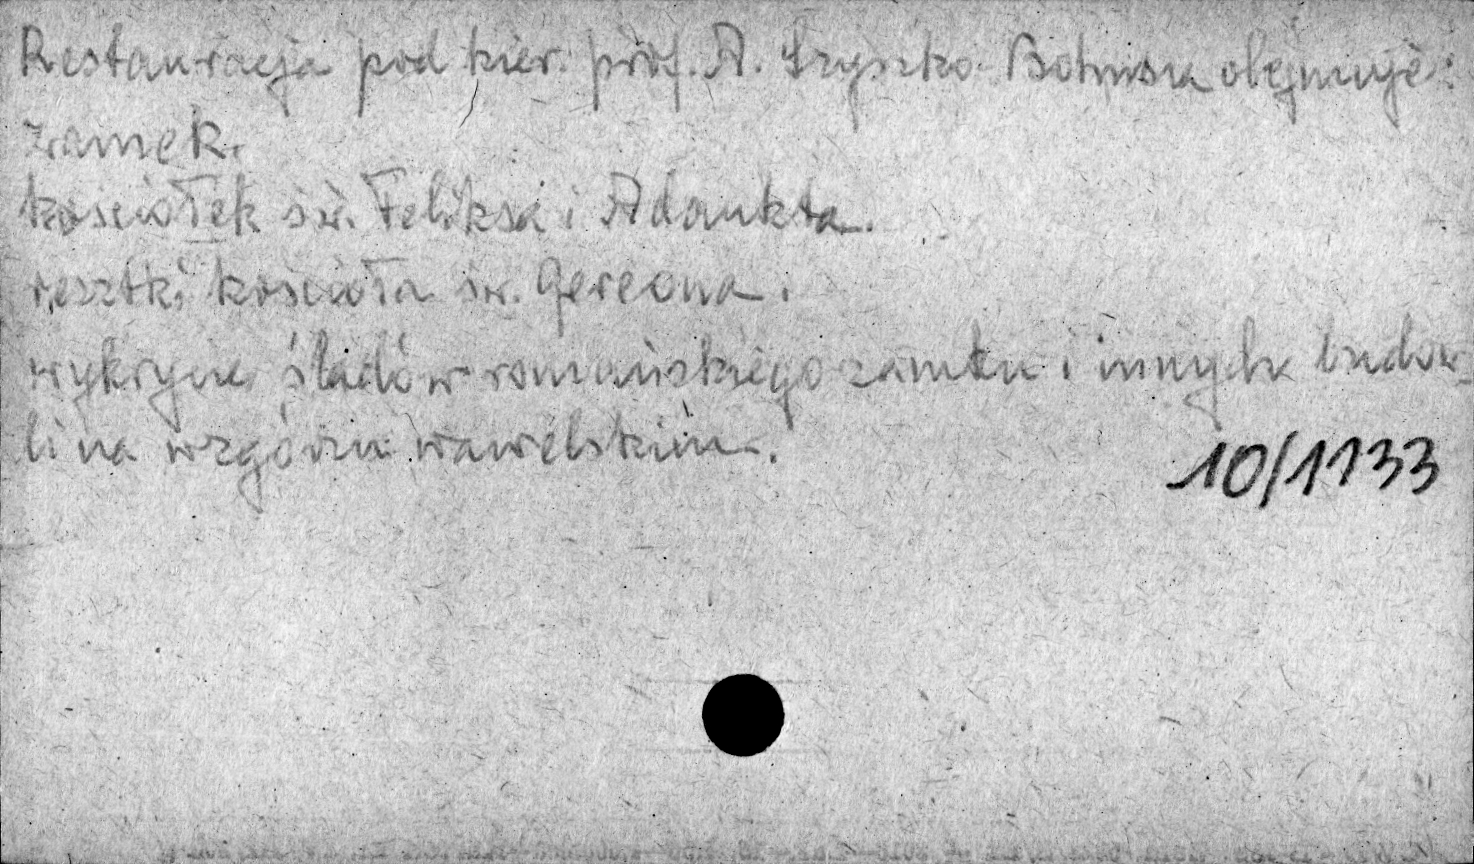 Restauracja pod kier. prof. A. Szyszko-Bohusza obejmuje:
zamek.
kościołek św. Feliksa i Adaukta.
resztki kościoła św. Gereona.
wykrycie śladów romańskiego zamku i innych budow-
li na wzgórzu wawelskim.
10/1133